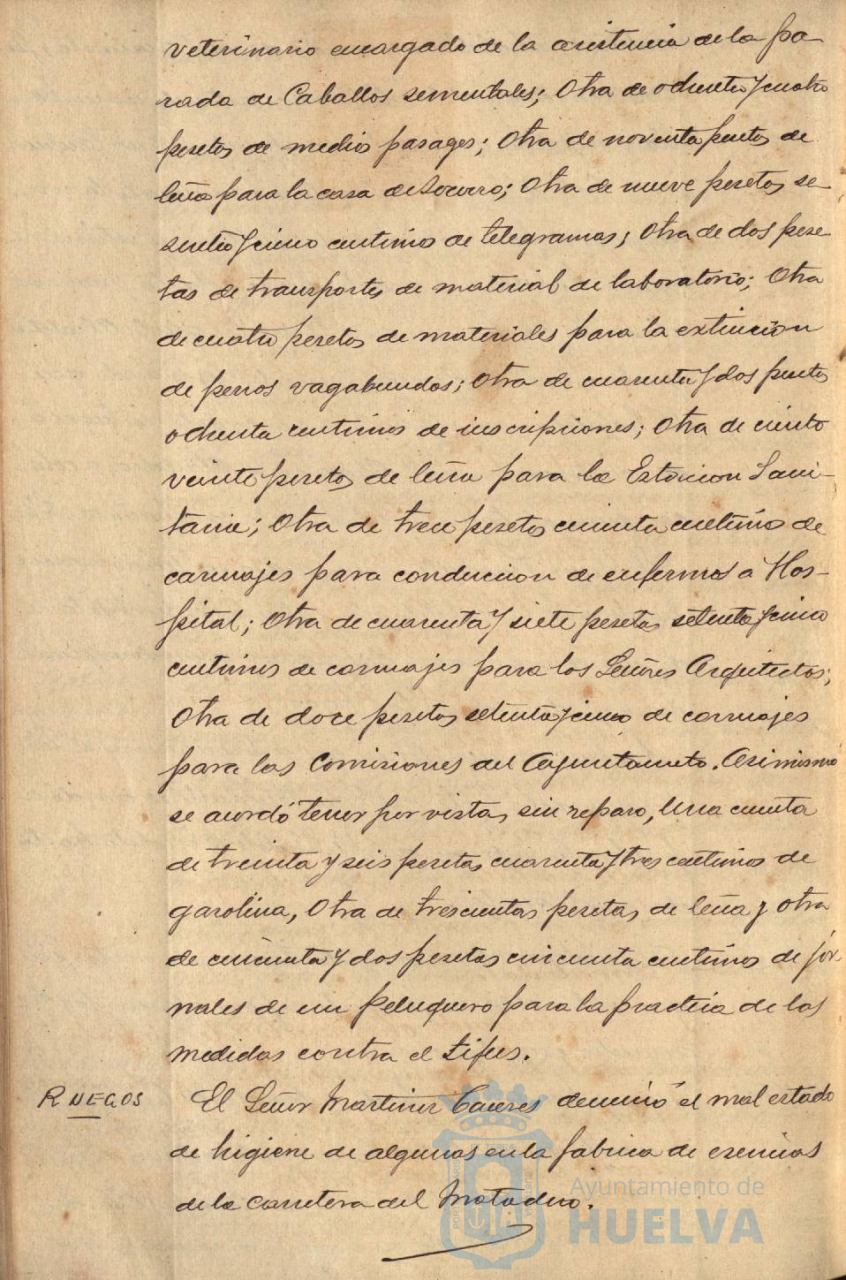 veterinario encargado de la asistencia de la pa
rada de Caballos sementales; Otra de ochenta y cuatro
pesetas de medios pasages; Otra de noventa pesetas de
leña para la casa de Socorro; Otra de nueve pesetas se-
senta y cinco centimos de telegramas; Otra de dos pese
tas de transportes de material de laboratorio; Otra
de cuatro pesetas de materiales para la extincion
de perros vagabundos; Otra de cuarenta y dos pesetas
ochenta centimos de inscripciones; Otra de ciento
veinte pesetas de leña para la Estacion Sani-
taria; Otra de trece pesetas cincuenta centimos de
carruajes para conduccion de enfermos a Hos-
pital; Otra de cuarenta y siete pesetas setenta y cinco
centimos de carruajes para los Señores Arquitectos;
Otra de doce pesetas setenta y cinco de carruajes
para las Comisiones del Ayuntamiento. Asimismo
se acordó tener por vista, sin reparo, una cuenta
de treinta y seis pesetas cuarenta y tres centimos de
gasolina, Otra de trescientas pesetas de leña y otra
de cincuenta y dos pesetas cincuenta centimos de jor
nales de un Peluquero para la practica de las
medidas contra el tifus.
RUEGOS
El Señor Martinez Caceres denunció el mal estado
de higiene de algunas en la fabrica de esencias
de la carretera del Matadero.
Ayuntamiento de
HUELVA